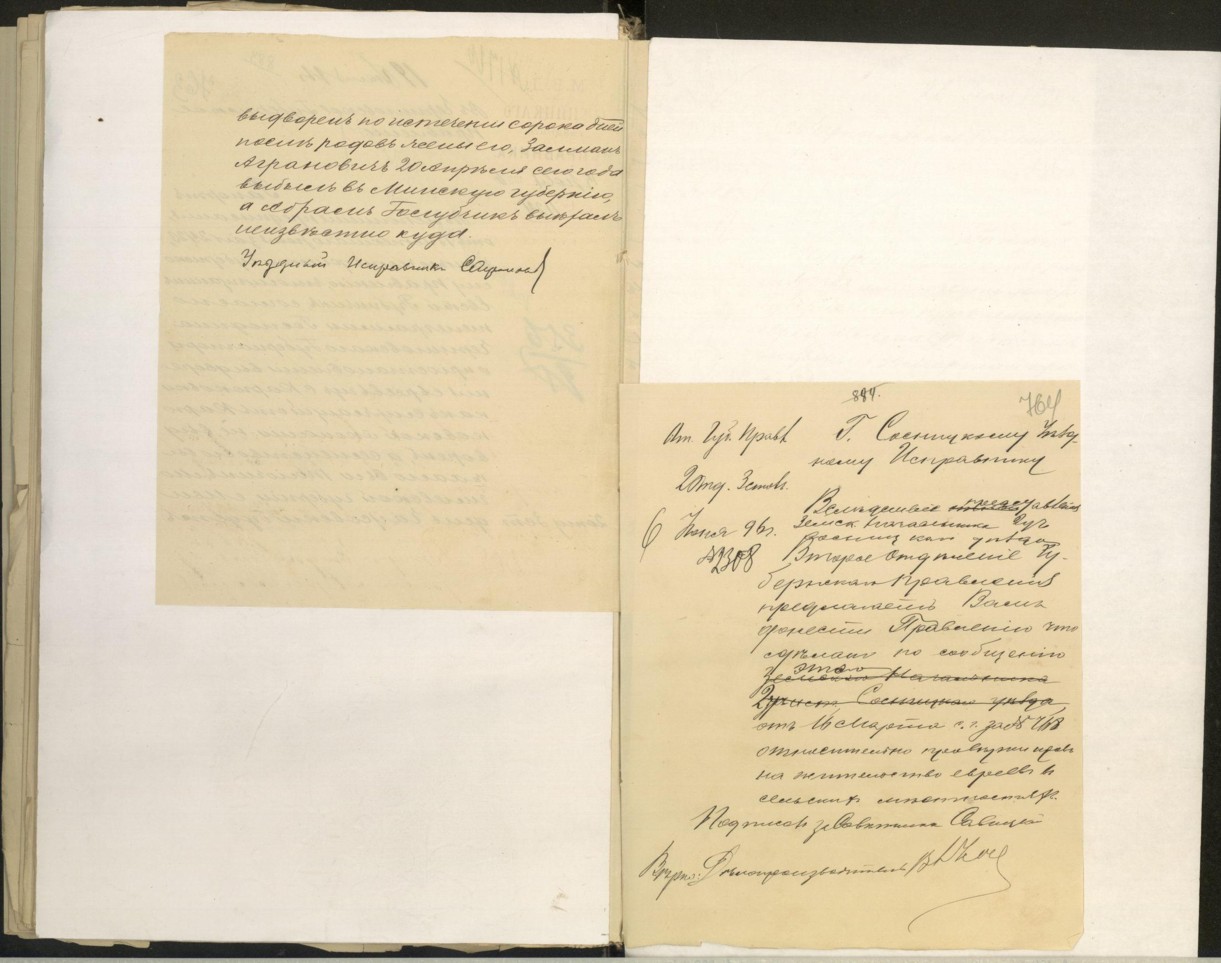 выдворенъ по истеченіи сорока дней
послѣ родовъ жены его, Залманъ
Аграновичъ 20 Апрѣля сего года
выбылъ въ Минскую губернію,
а Абрамъ Голубчикъ выѣхалъ
неизвѣстно куда.
Уѣздный Исправникъ
884.
764
От. Губ. Правл
2 Отд. 3 стол.
6 Іюня 96 г.
№ 2308
Г. Сосницкому Уѣзд-
ному Исправнику
Вслѣдствіе
Земск. Начальника 2 уч
Сосницкаго уѣзда
Второе Отдѣленіе Гу-
бернскаго Правленія
предлагаетъ Вамъ
донести Правленію что
сдѣлано по сообщенію
этого
Земскаго Начальника
2 участ. Сосницкаго уѣзда
отъ 16 Марта с. г. за № 768
относительно провѣрки правъ
на жительство евреевъ въ
сельскихъ мѣстностяхъ.
Подписалъ за Совѣтника Савицкій
Вѣрно: Дѣлопроизводитель